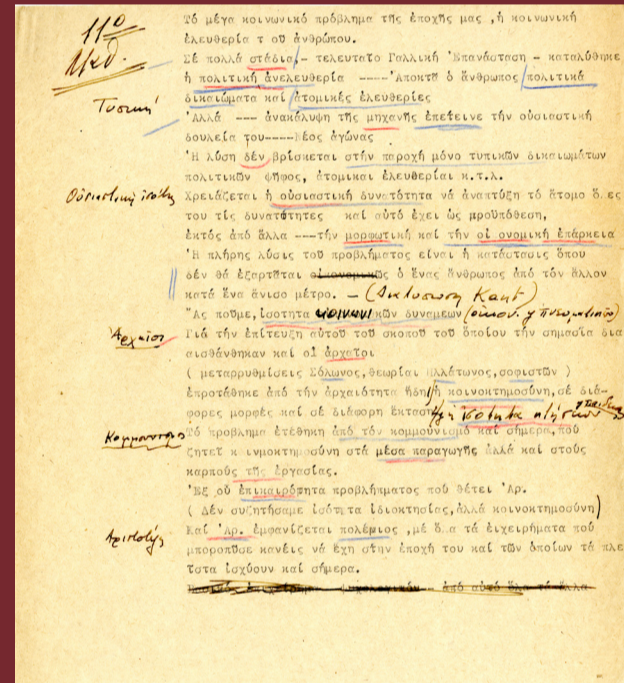 11ο
Τό μέγα κοινωνικό πρόβλημα τῆς ἐποχῆς μας ,ἡ κοινωνική
ἐλευθερία τ οῦ ἀνθρώπου.
Σέ πολλά στάδια - τελευταῖο Γαλλική Ἐπανάσταση - καταλύθηκε
ἡ πολιτική ἀνελευθερία ----Ἀποκτᾶ ὁ ἄνθρωπος πολιτικά
Τυπική
δικαιώματα καί ἀτομικές ἐλευθερίες
Ἀλλά --- ἀνακάλυψη τῆς μηχανῆς ἐπέτεινε τήν οὐσιαστική
δουλεία του----Νέος ἀγώνας
Ἡ λύση δέν βρίσκεται στήν παροχή μόνο τυπικῶν δικαιωμάτων
πολιτικῶν ψῆφος, ἀτομικαι ἐλευθερίαι κ.τ.λ.
Οὐσιαστική
Χρειάζεται ἡ οὐσιαστική δυνατότητα νά ἀναπτύξη τό ἄτομο ὅλες
του τίς δυνατότητες καί αὐτό ἔχει ὡς προϋπόθεση,
ἐκτός ἀπό ἄλλα ---τήν μορφωτική καί τήν οἰ ονομική ἐπάρκεια
Ἡ πλήρης λύσις τοῦ προβλήματος εἶναι ἡ κατάστασις ὅπου
δέν θά ἐξαρτᾶται οἰκονομικῶς ὁ ἕνας ἄνθρωπος ἀπό τόν ἄλλον
κατά ἕνα ἄνισο μέτρο. - (Διατύπωση Καντ)
Ἄς ποῦμε, ἰσοτητα κοινωνικῶν δυνάμεων
Ἀρχαῖοι
Γιά τήν ἐπίτευξη αὐτοῦ τοῦ σκοποῦ τοῦ ὁποίου τήν σημασία δια
αισθάνθηκαν καί οἱ ἀρχαῖοι
( μεταρρυθμίσεις Σόλωνος,θεωρίαι Πλάτωνος,σοφιστῶν )
ἐπροτάθηκε ἀπό τήν ἀρχαιότητα ἤδη ἡ κοινοκτημοσύνη,σέ διά-
φορες μορφές καί σέ διάφορη ἔκταση
Κομμουνισμός
Τό πρόβλημα ἐτέθηκη ἀπό τόν κομμουνισμό καί σήμερα,πού
ζητεῖ κ ινμοκτημοσύνη στά μέσα παραγωγῆς ἀλλά καί στούς
καρπούς τῆς ἐργασίας.
Ἐξ οὗ ἐπικαιρότητα προβλήπματος πού θέτει Ἀρ.
( Δέν συζητήσαμε ἰσότητα ἰδιοκτησίας,ἀλλά κοινοκτημοσύνη)
Ἀριστοτέλης
Καί Ἀρ. ἐμφανίζεται πολέμιος ,μέ ὅλα τά ἐιχειρήματα πού
μποροποῦσε κανείς νά ἔχη στην ἐποχή του καί τῶν ὁποίων τά πλε
ῖστα ἰσχύουν καί σήμερα.